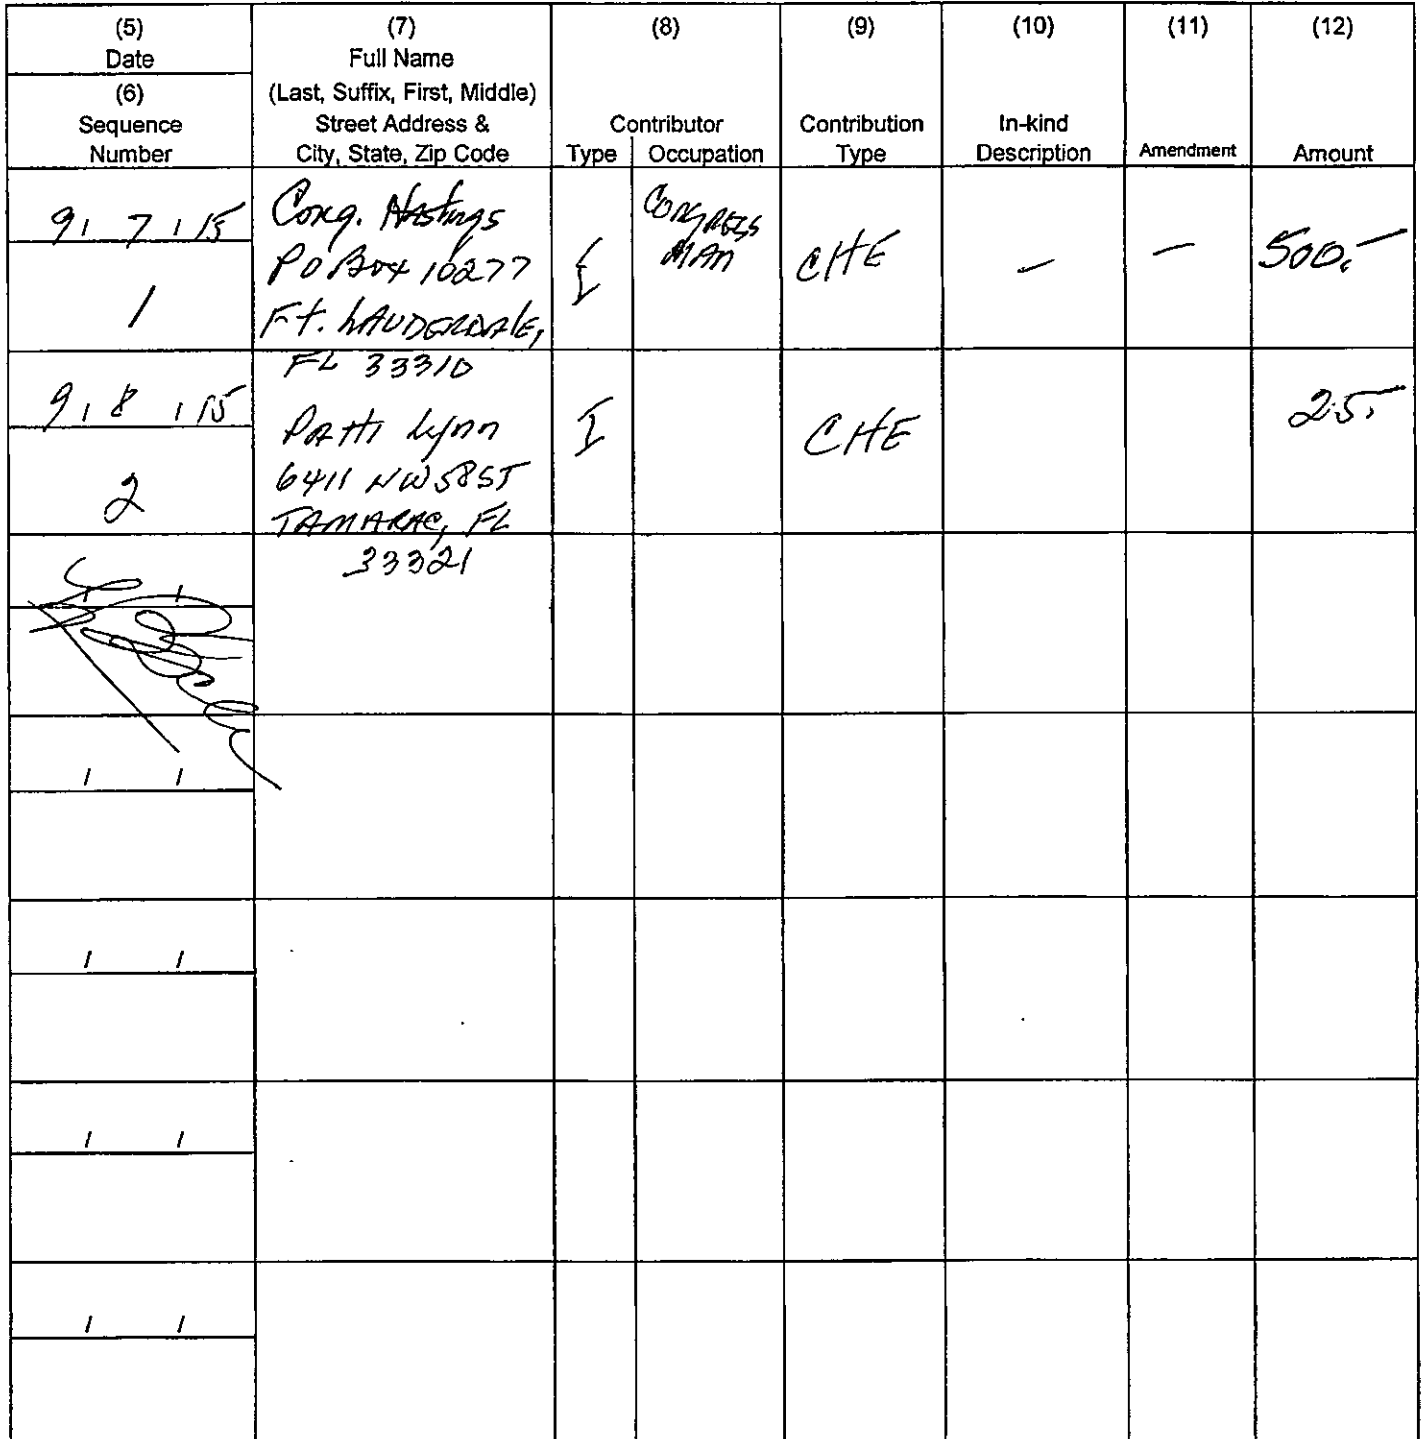 (5)
Date
(6)
Sequence
Number
(7)
Full Name
(Last, Suffix, First, Middle)
Street Address &
City, State, Zip Code
(8)
Contributor
Type Occupation
(9)
Contribution
Type
(10)
In-kind
Description
(11)
Amendment
(12)
Amount
9 / 7 / 15
1
Cong. Hastings
PO Box 10277
Ft. LAUDERDALE,
FL 33310
I
CONGRESS
MAN
CHE
—
—
500.—
9 / 8 / 15
2
Patti Lynn
6411 NW 58 ST
TAMARAC, FL
33321
I
CHE
25.—
/ /
/ /
/ /
/ /
/ /